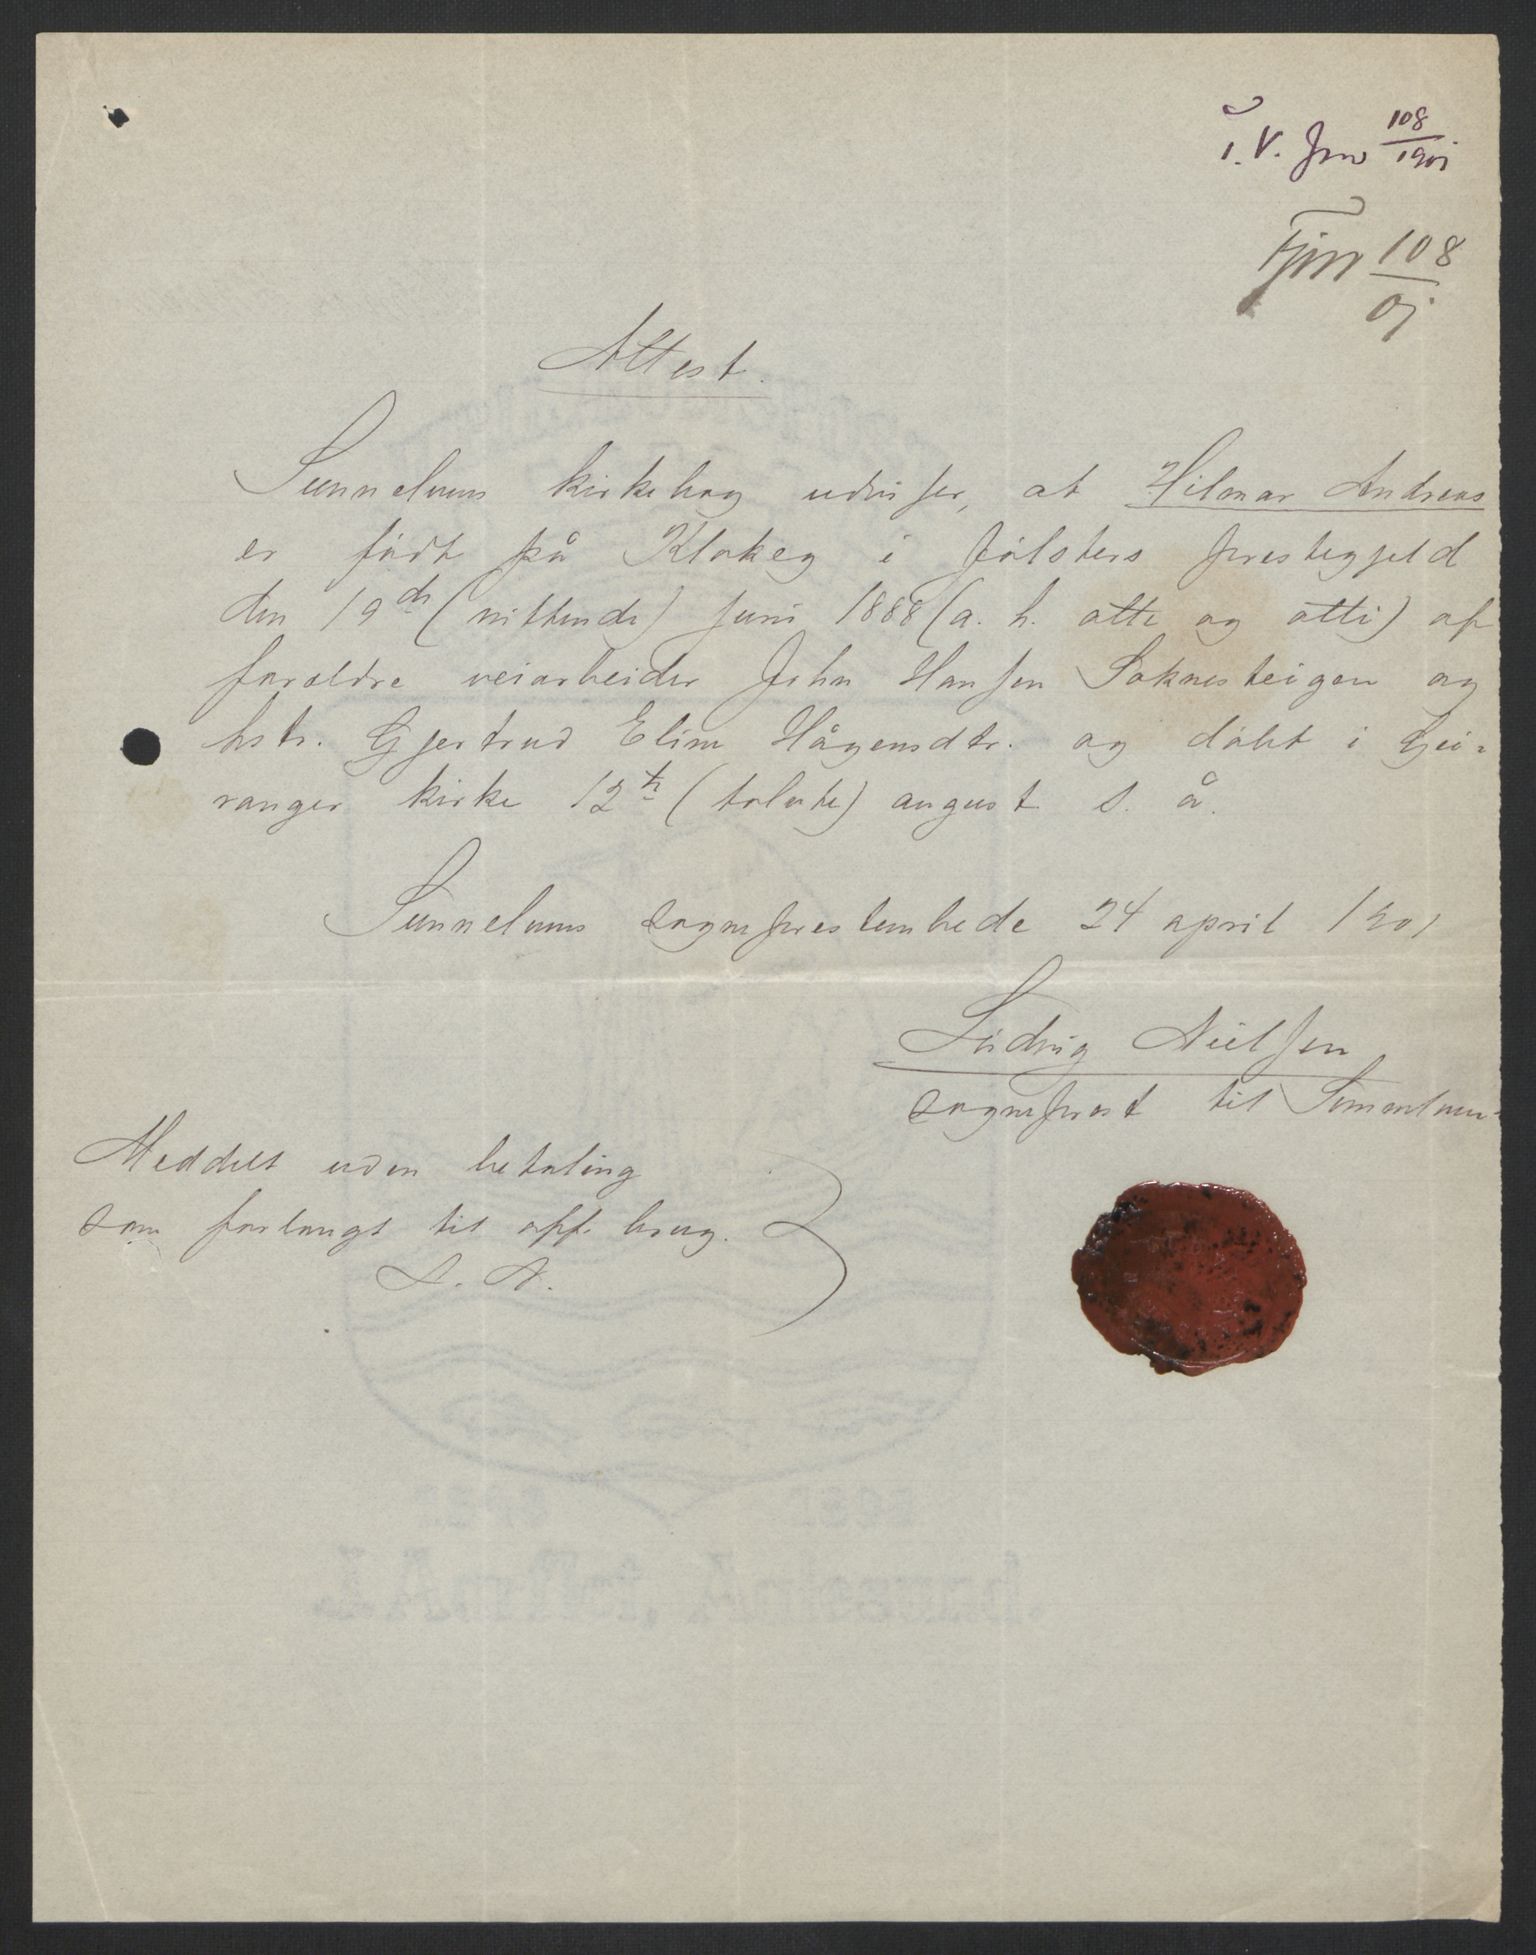 i. V. Jnr 108/1901
Fjnr 108/01
Attest.
Sunnelvens kirkebog udviser, at Hilmar Andreas
er født på Klakeg i Jølsters prestegjeld
den 19de (nittende) juni 1888 (a. h. otte og otti) af
forældre veiarbeider John Hansen Soknesteigen og
hstr. Gjertrud Eline Hågensdtr. og døbt i Gei-
ranger kirke 12te (tolvte) august s. å.
Sunnelvens sogneprestembede 24 april 1901
Ludvig Nielsen
sogneprest til Sunnelven
Meddelt uden betaling
som forlangt til off. brug.
L. N.